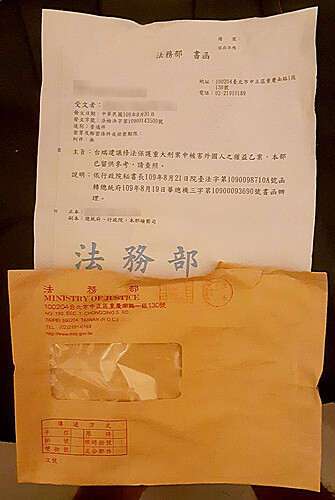 法務部 書函
地址：100204臺北市中正區重慶南路1段
130號
電話：02-21910189
受文者：
發文日期：中華民國109年8月31日
發文字號：法檢決字第10900143500號
速別：普通件
密等及解密條件或保密期限：
附件：無
主旨：台端建議修法保護重大刑案中被害外國人之權益乙案，本部
已留供參考，請查照。
說明：依行政院秘書長109年8月21日院臺法字第1090098710A號函
轉總統府109年8月19日華總機三字第10900093690號書函辦
理。
正本：
副本：總統府、行政院、本部檢察司
法務部
法務部
MINISTRY OF JUSTICE
100204台北市中正區重慶南路一段130號
NO. 130, SEC. 1, CHONGQING S. RD.
TAIPEI 100204, TAIWAN (R.O.C.)
TEL: (02)2191-0189
http://www.moj.gov.tw
傳遞方式
平信
限時
掛號
限時掛號
雙掛號
文號：